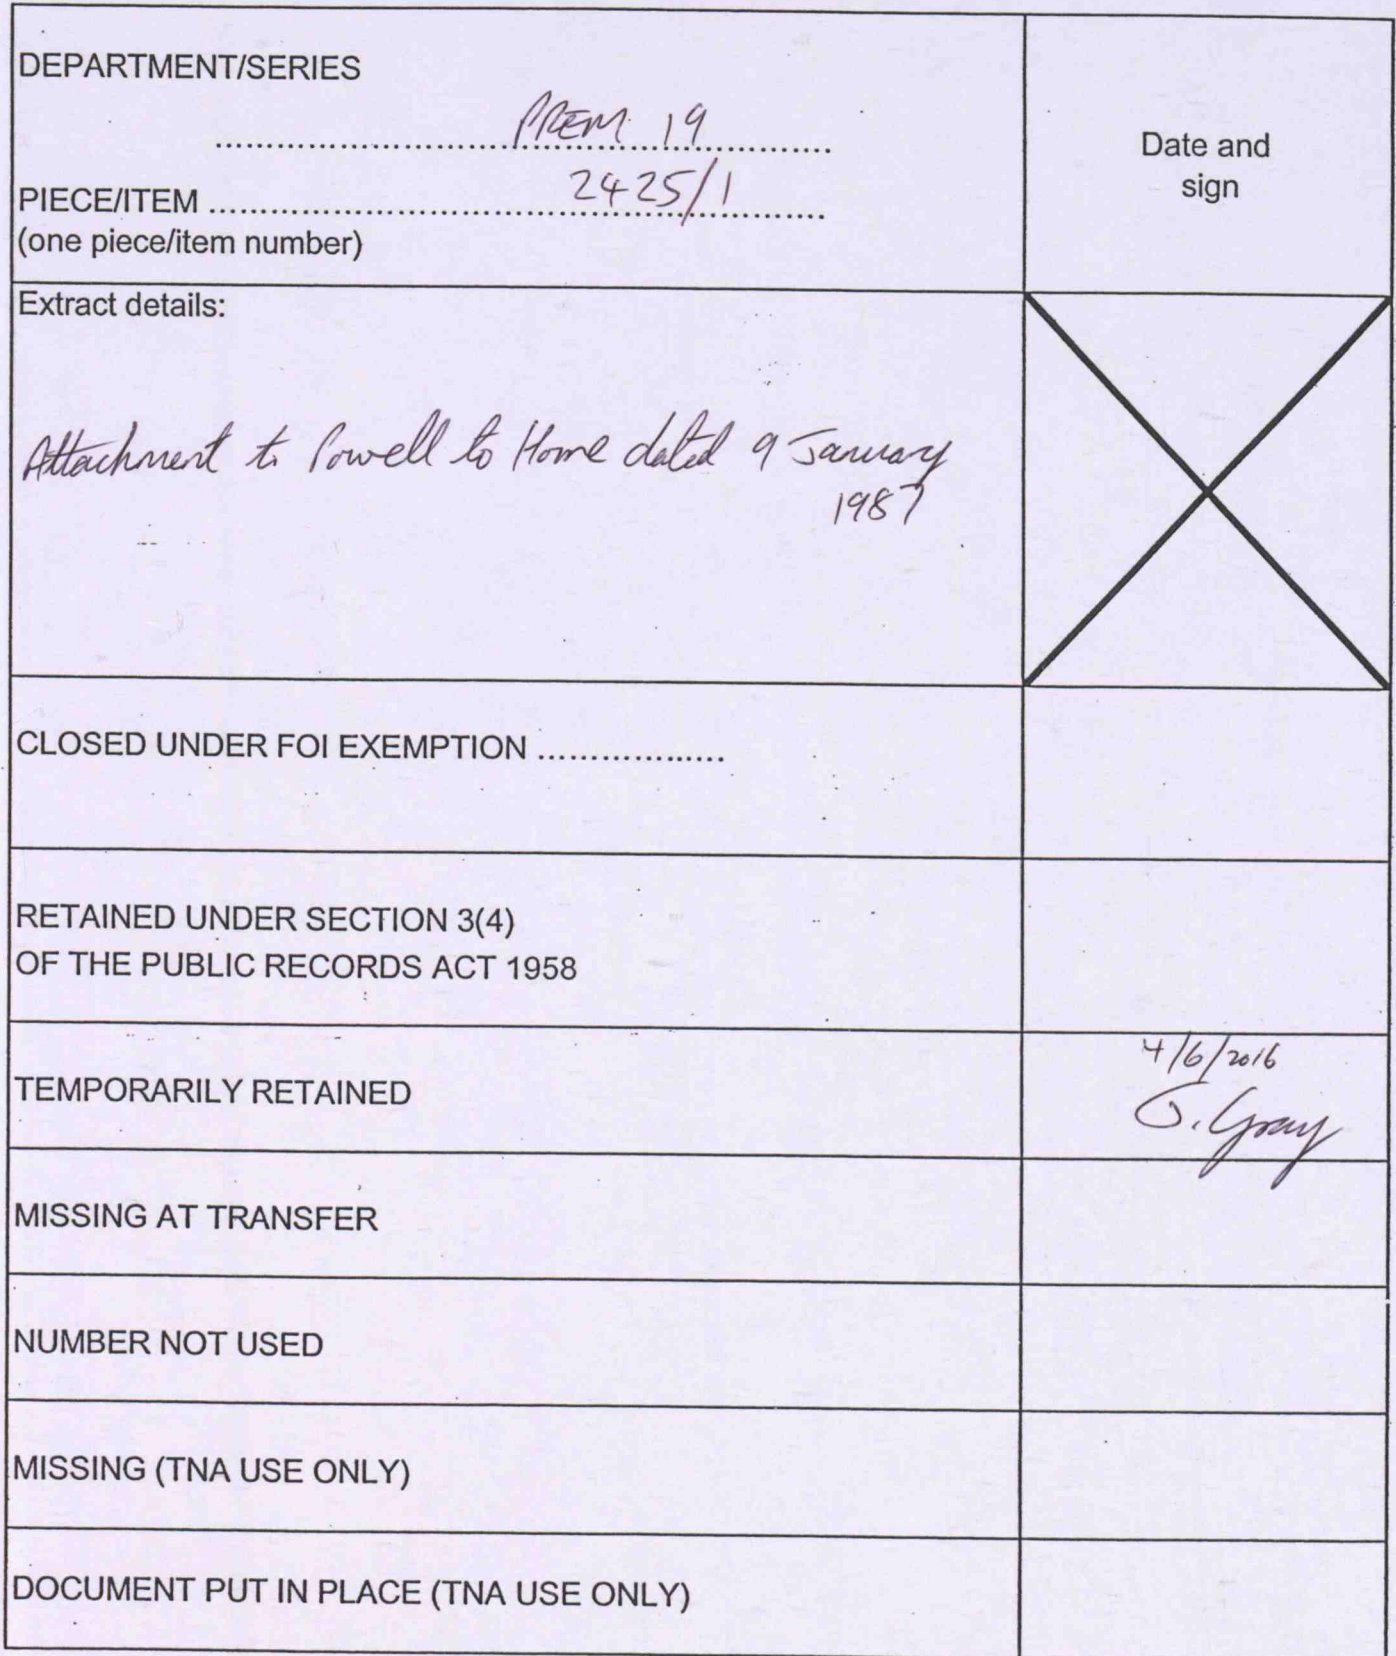 DEPARTMENT/SERIES
PREM 19
Date and
sign
PIECE/ITEM
2425/1
(one piece/item number)
Extract details:
Attachment to Powell to Home dated 9 January
1987
CLOSED UNDER FOI EXEMPTION
RETAINED UNDER SECTION 3(4)
OF THE PUBLIC RECORDS ACT 1958
TEMPORARILY RETAINED
4/6/2016
J. Gray
MISSING AT TRANSFER
NUMBER NOT USED
MISSING (TNA USE ONLY)
DOCUMENT PUT IN PLACE (TNA USE ONLY)